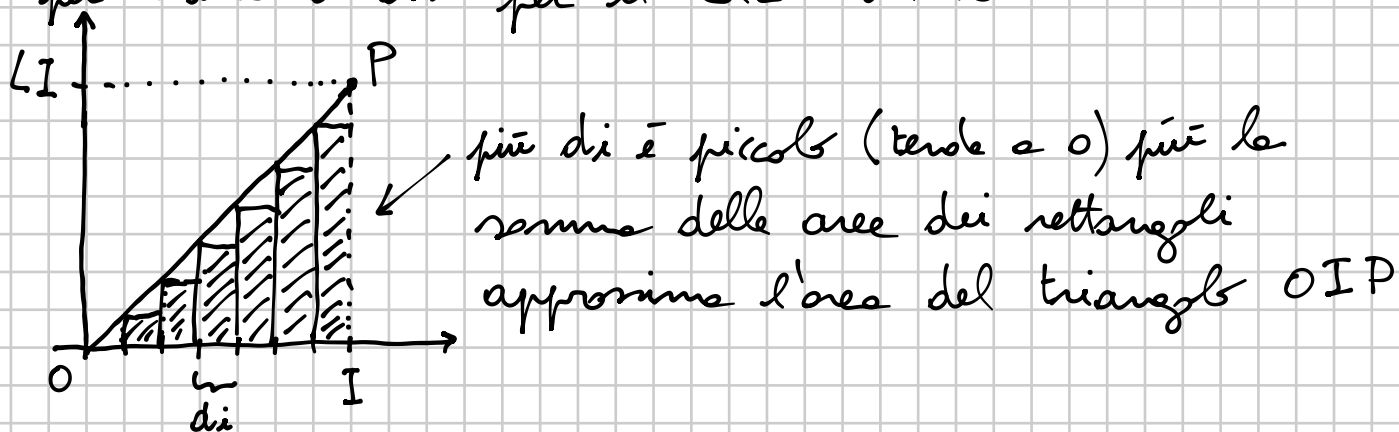 LI
P
più di è piccolo (tende a 0) più la
somma delle aree dei rettangoli
approssima l'area del triangolo OIP
O
I
di